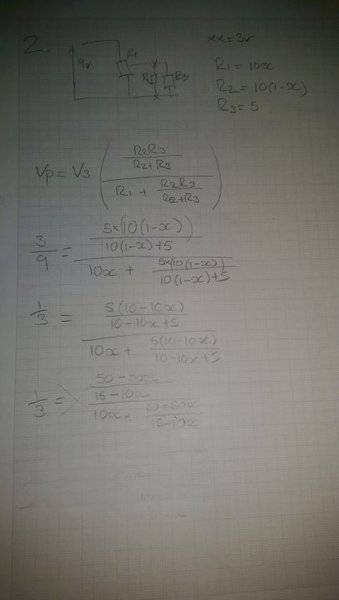 2.
9v R1 R2 R3
xx = 3v
R1 = 10x
R2 = 10(1-x)
R3 = 5
Vp = Vs ( (R2R3 / R2+R3) / (R1 + R2R3 / R2+R3) )
3/9 = (5×(10(1-x)) / 10(1-x)+5) / (10x + 5×(10(1-x)) / 10(1-x)+5)
1/3 = (5(10-10x) / 10-10x+5) / (10x + 5(10-10x) / 10-10x+5)
1/3 = (50 - / 15-10x) / (10x + 50-50x / 15-10x)